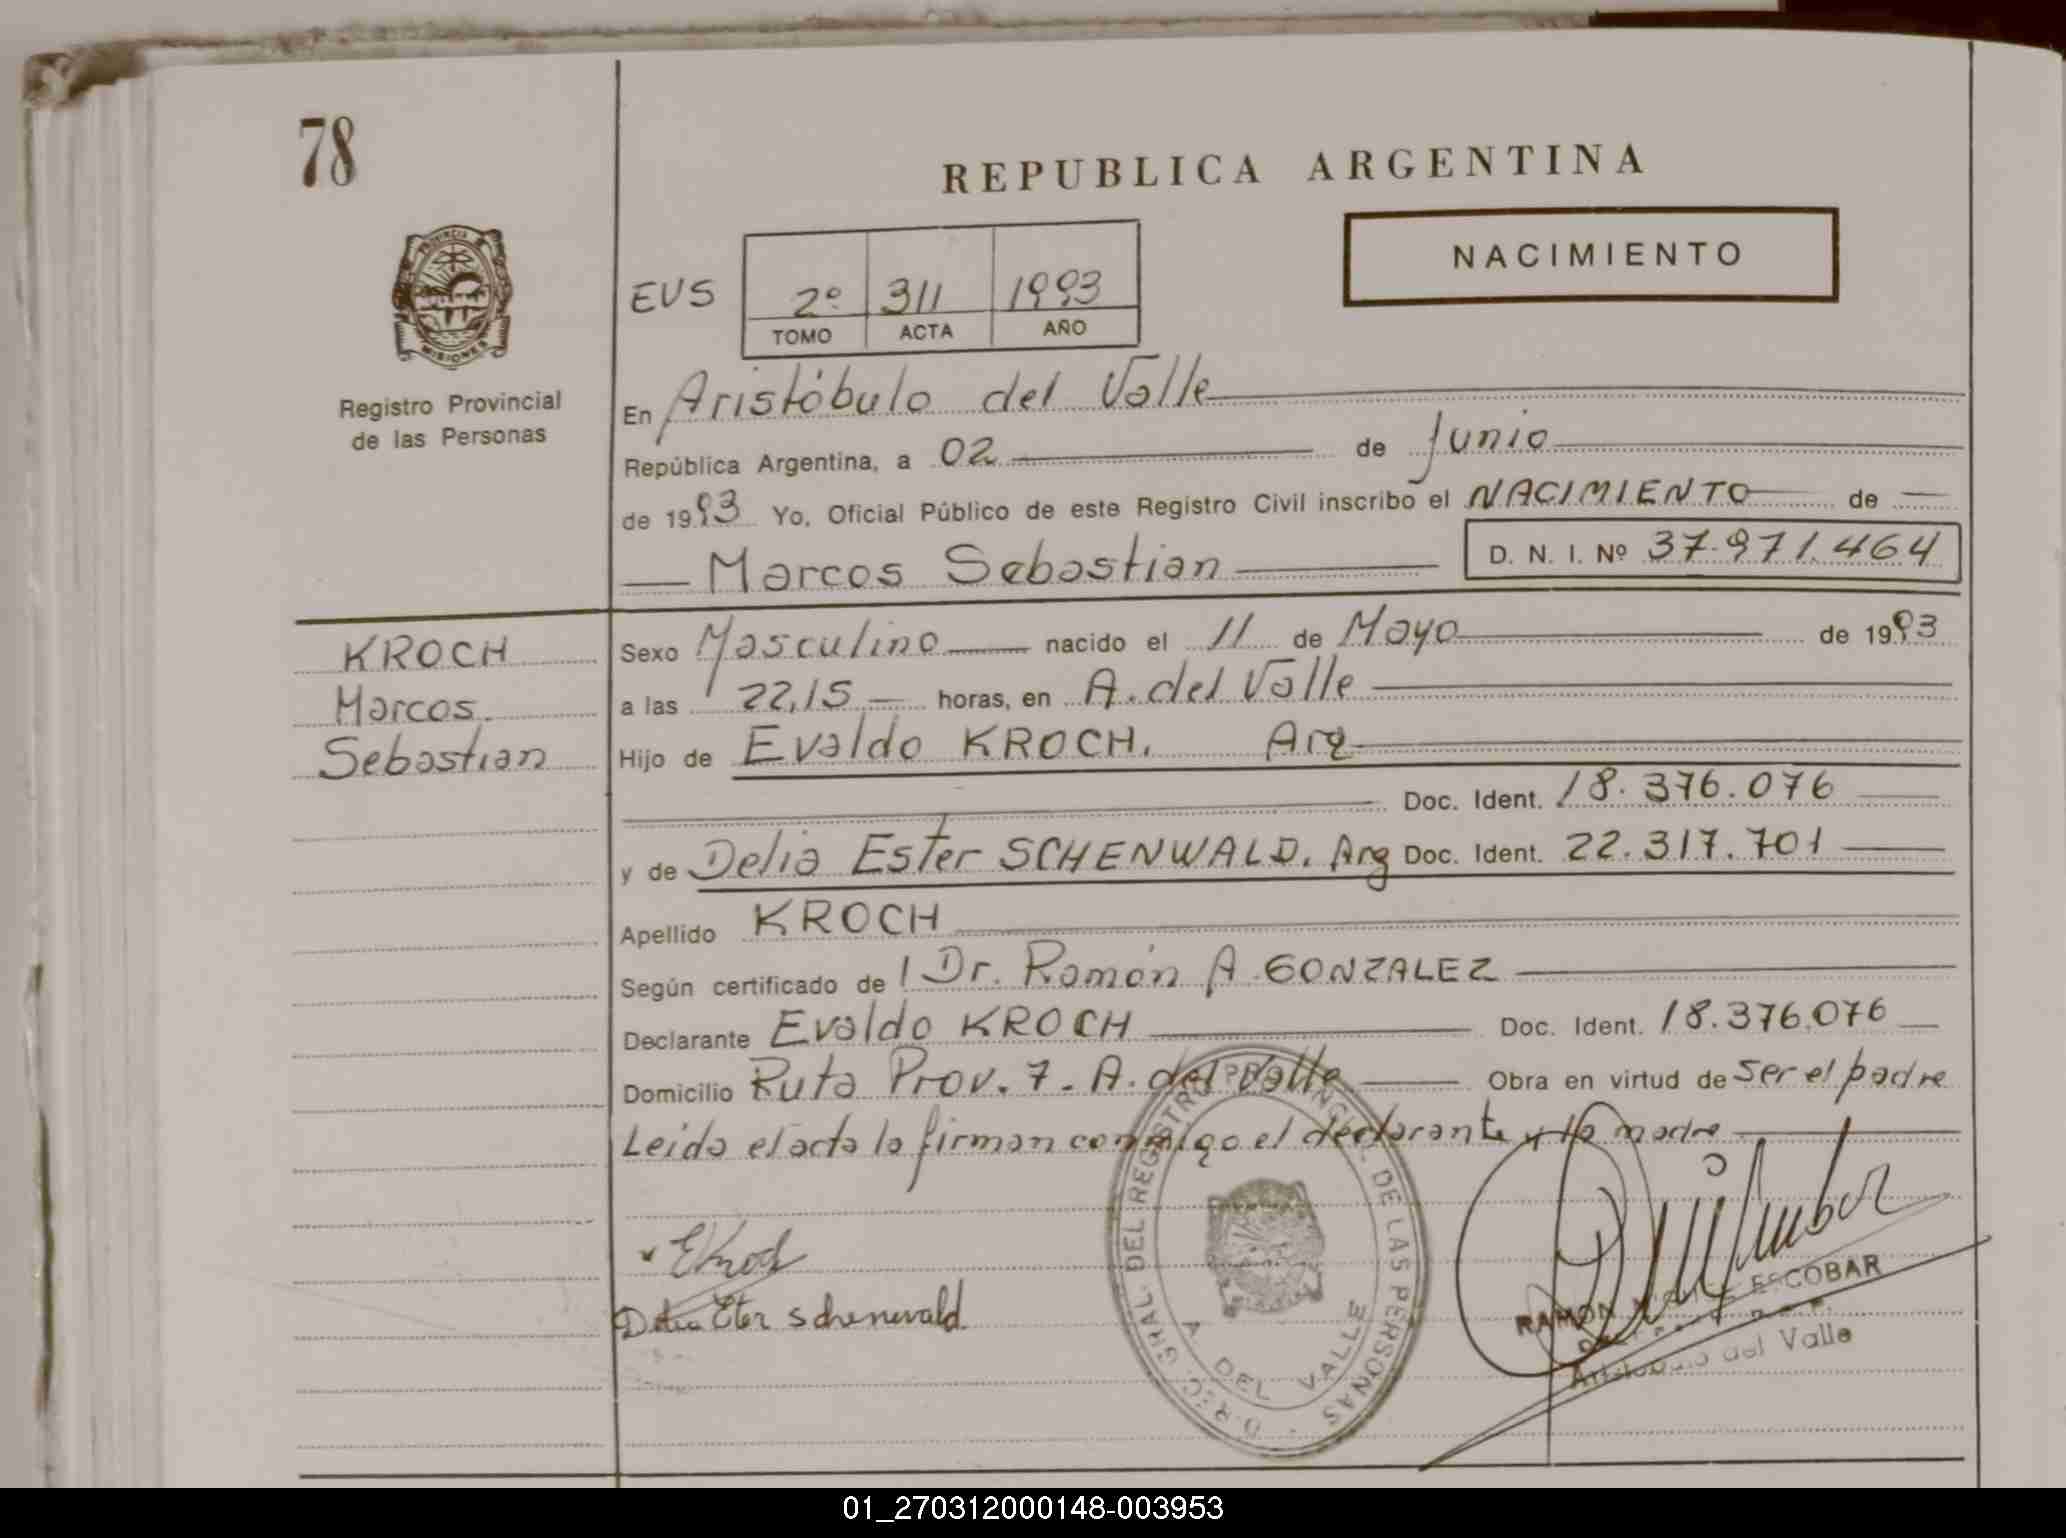 78
REPUBLICA ARGENTINA
NACIMIENTO
PROVINCIA
MISIONES
Registro Provincial
de las Personas
EUS
2º 311 1993
TOMO ACTA AÑO
En Aristóbulo del Valle
República Argentina, a 02 de Junio
de 1993 Yo, Oficial Público de este Registro Civil inscribo el NACIMIENTO de
Marcos Sebastian D. N. I. Nº 37.971.464
KROCH
Marcos
Sebastian
Sexo Masculino nacido el 11 de Mayo de 1993
a las 22,15 horas, en A. del Valle
Hijo de Evaldo KROCH. Arg
Doc. Ident. 18.376.076
y de Delia Ester SCHENWALD. Arg Doc. Ident. 22.317.701
Apellido KROCH
Según certificado de Dr. Ramón A GONZALEZ
Declarante Evaldo KROCH Doc. Ident. 18.376.076
Domicilio Ruta Prov. 7 - A. del Valle Obra en virtud de ser el padre
Leida el acta la firman conmigo el declarante y la madre
EKroch
Delia Ester Schenwald
D REC. GRAL. DEL REGISTRO PROVINCIAL DE LAS PERSONAS
A DEL VALLE
RAMON ESCOBAR
Aristobulo del Valle
01_270312000148-003953